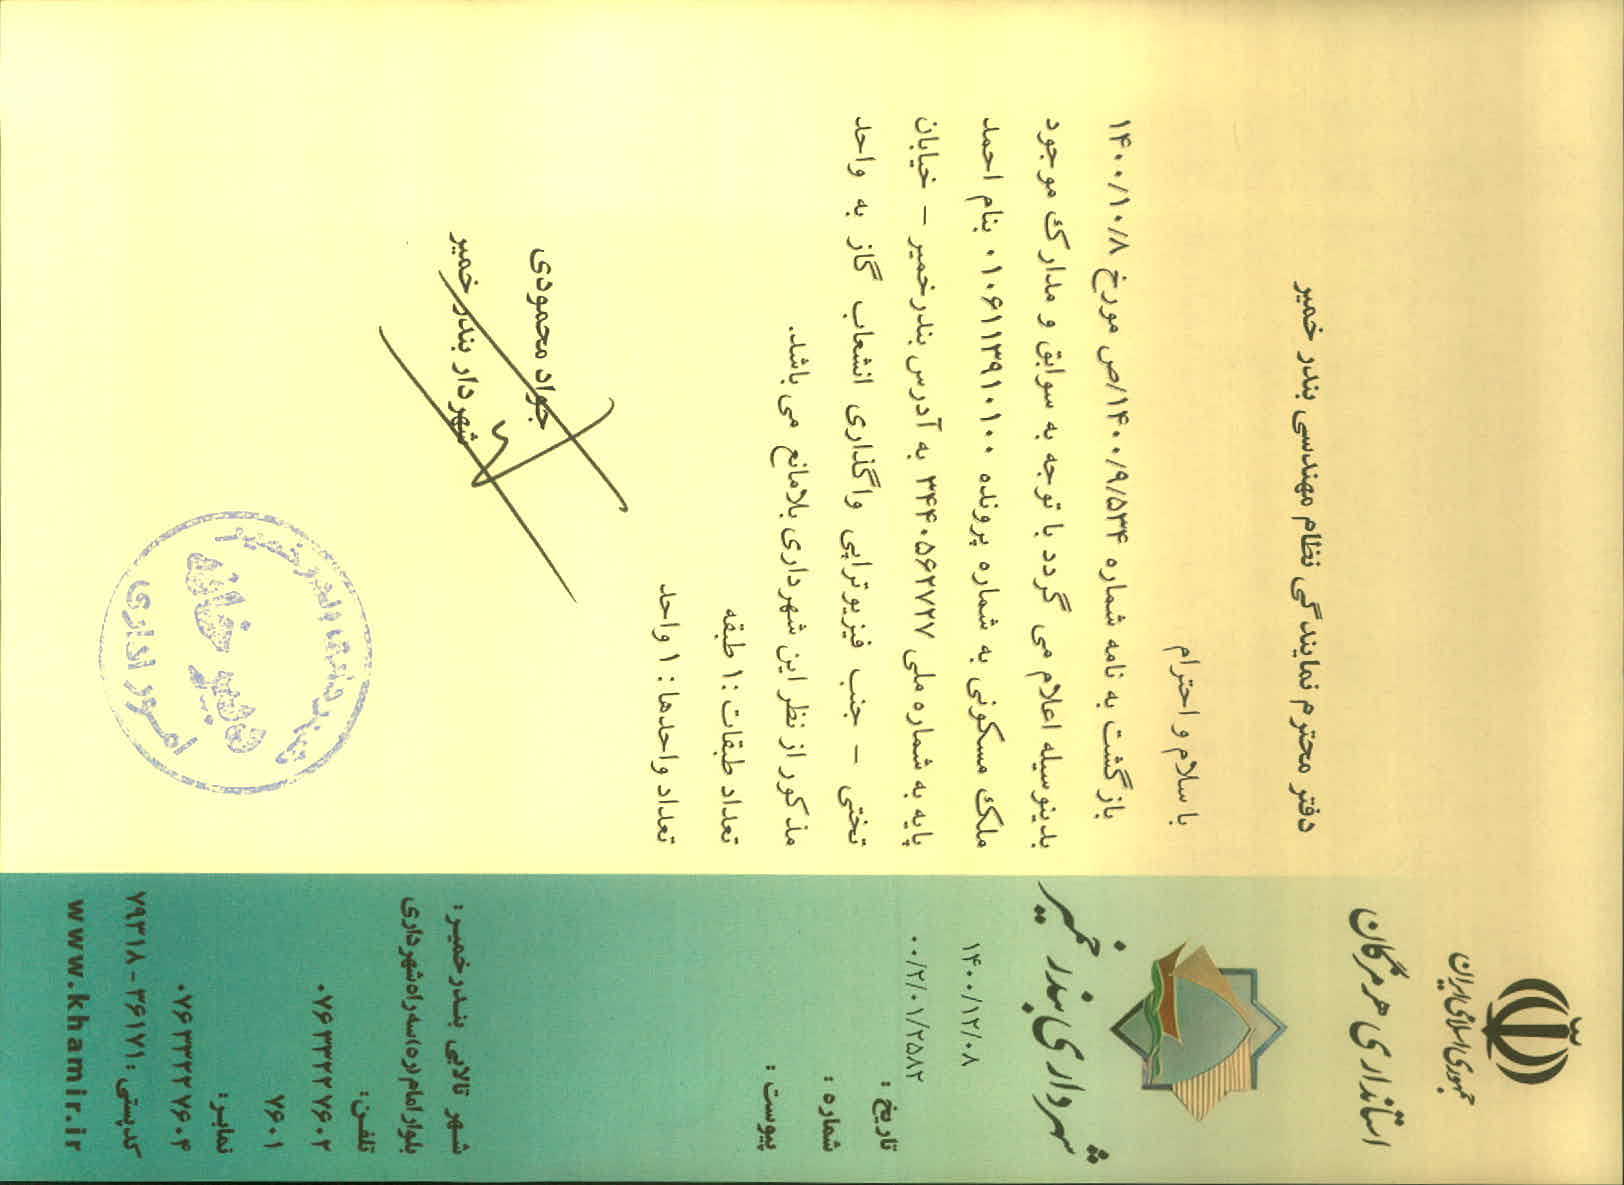 جمهوری اسلامی ایران
استانداری هرمزگان
شهرداری بندر خمیر
۱۴۰۰/۱۲/۰۸
۰۰/۲/۰۱/۲۵۸۲
تاریخ :
شماره :
پیوست :
دفتر محترم نمایندگی نظام مهندسی بندر خمیر
با سلام و احترام
بازگشت به نامه شماره ۱۴۰۰/۹/۵۳۴/ص مورخ ۱۴۰۰/۱۰/۸
بدینوسیله اعلام می گردد با توجه به سوابق و مدارک موجود
ملک مسکونی به شماره پرونده ۰۱۰۶۱۱۳۹۱۰۱۰۰ بنام احمد
پایه به شماره ملی ۳۴۴۰۵۶۲۷۳۷ به آدرس بندرخمیر – خیابان
تختی – جنب فیزیوتراپی واگذاری انشعاب گاز به واحد
مذکور از نظر این شهرداری بلامانع می باشد.
تعداد طبقات :۱ طبقه
تعداد واحدها : ۱ واحد
جواد محمودی
شهردار بندر خمیر
شهرداری بندر خمیر
دبیر خانه
امور اداری
شهر تالابی بندرخمیر :
بلوار امام (ره) سه راه شهرداری
تلفن:
۰۷۶۳۳۲۲۷۶۰۲
۷۶۰۱
نمابر:
۰۷۶۳۳۲۲۷۶۰۴
کدپستی : ۳۶۱۷۱ - ۷۹۳۱۸
www.khamir.ir